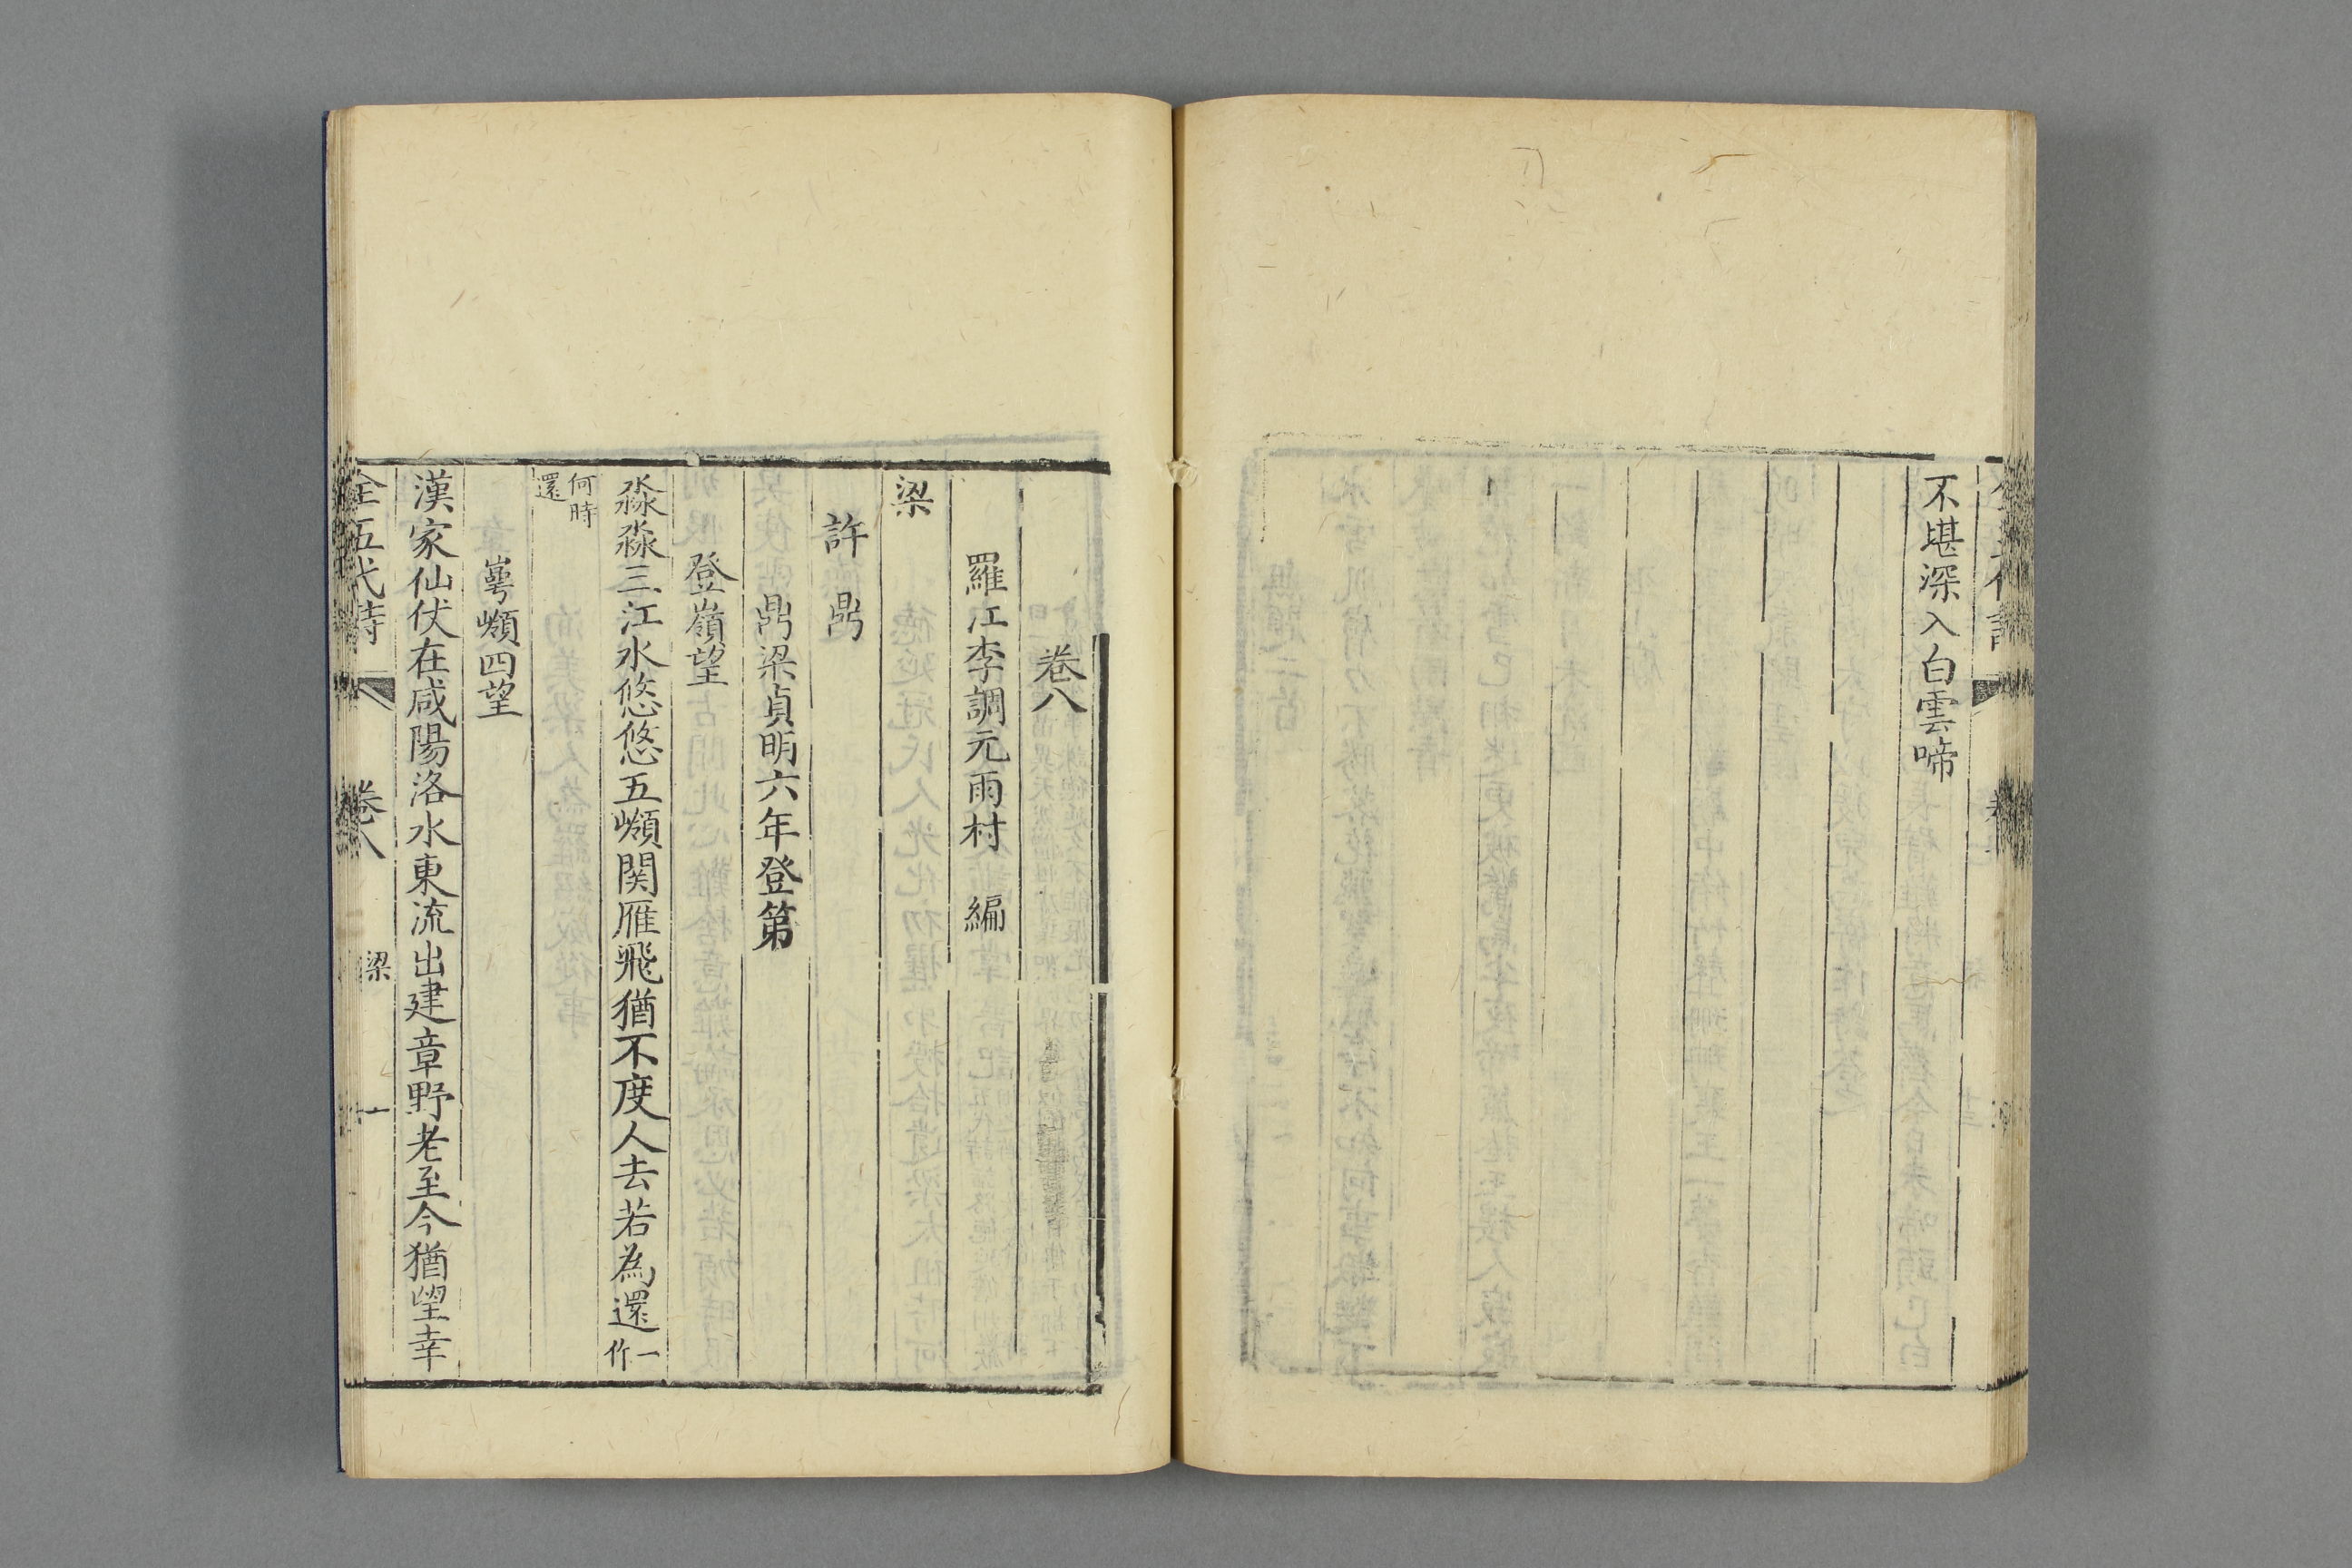 不堪深入白雲啼
卷八
羅江李調元雨村 編
梁
許鼎
鼎梁貞明六年登第
登嶺望
淼淼三江水悠悠五嶺関雁飛猶不度人去若為還一作
何時還
蕚嶺四望
漢家仙仗在咸陽洛水東流出建章野老至今猶望幸
全五代詩 卷八 梁 一